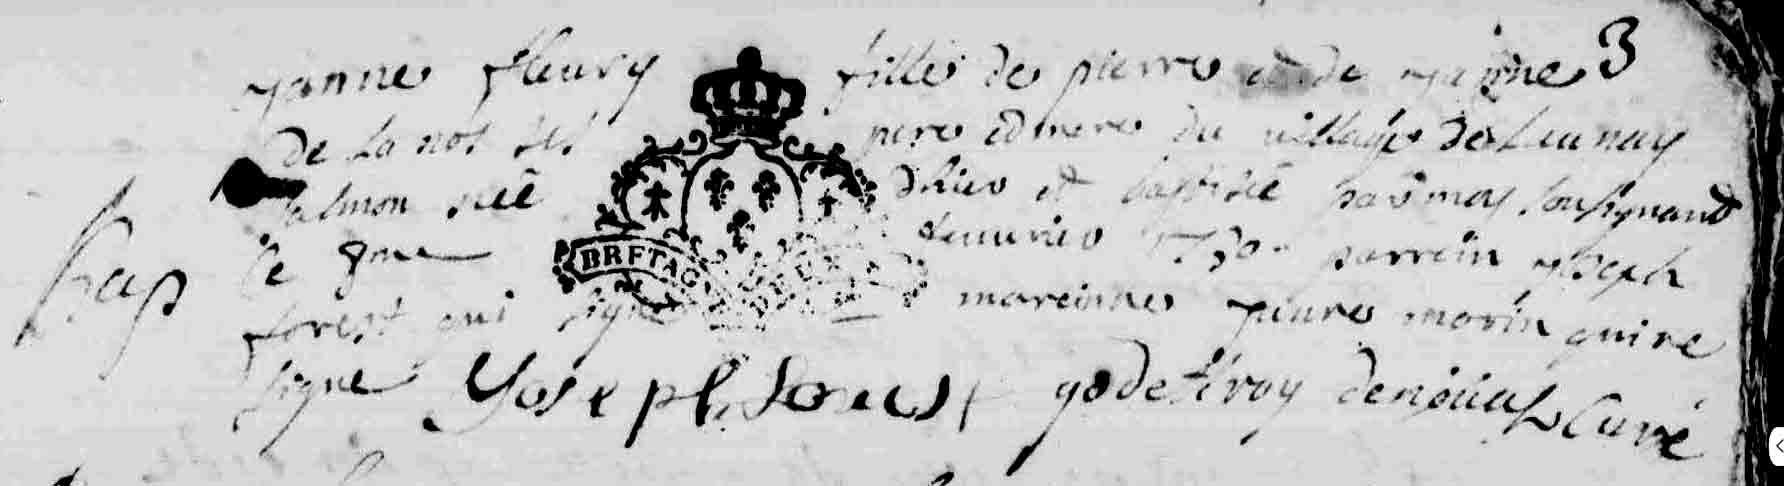 3
janne fleury fille de pierre et de janne
de la noe ses pere et mere du village de Launay
salmon née d'hier et baptisée par moy soussignant
Bap le 8me feuvrier 1730 parrein joseph
forest qui signe mareinne jeanne morin qui ne
signe Yoseph forest godefroy curé
BRETAG